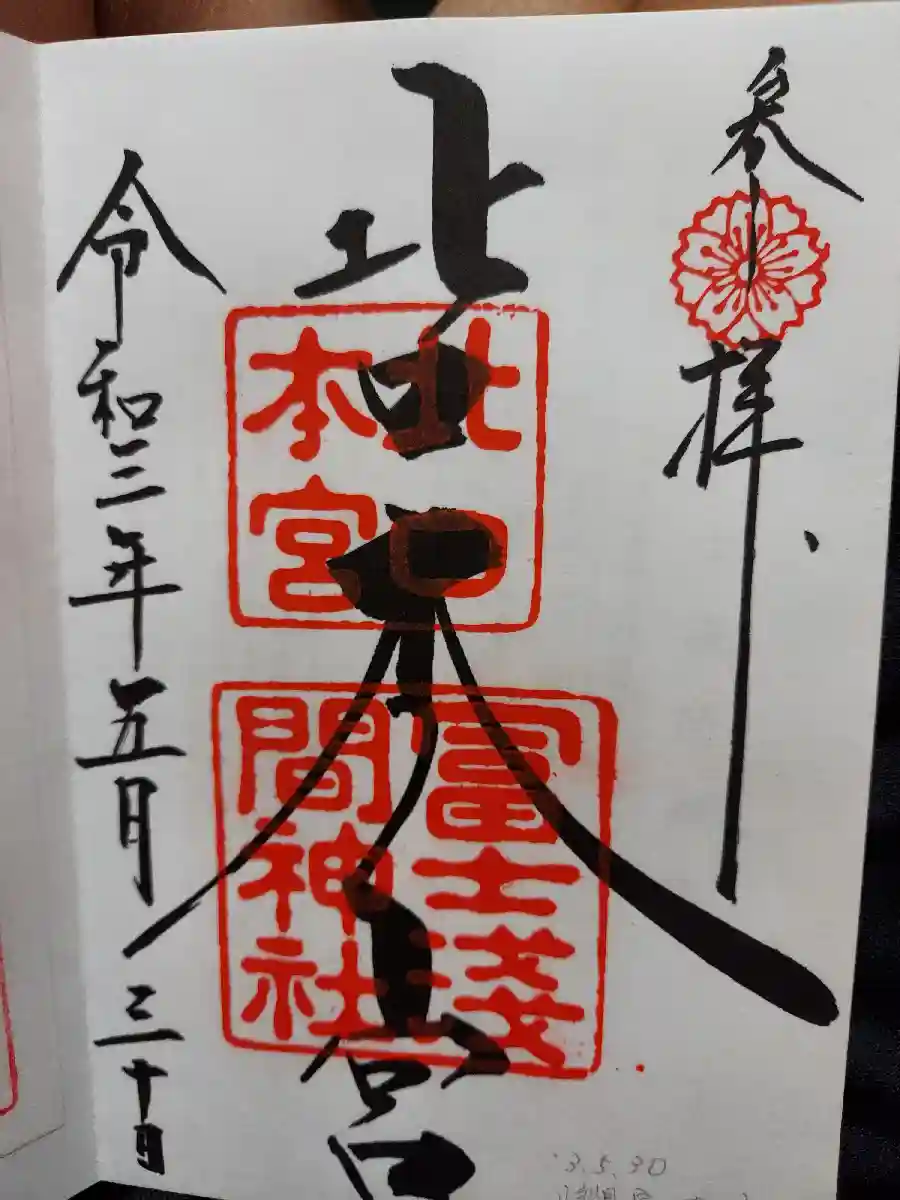 参拝
北口本宮
北口
本宮
冨士淺
間神社
令和三年五月三十日
'3.5.30